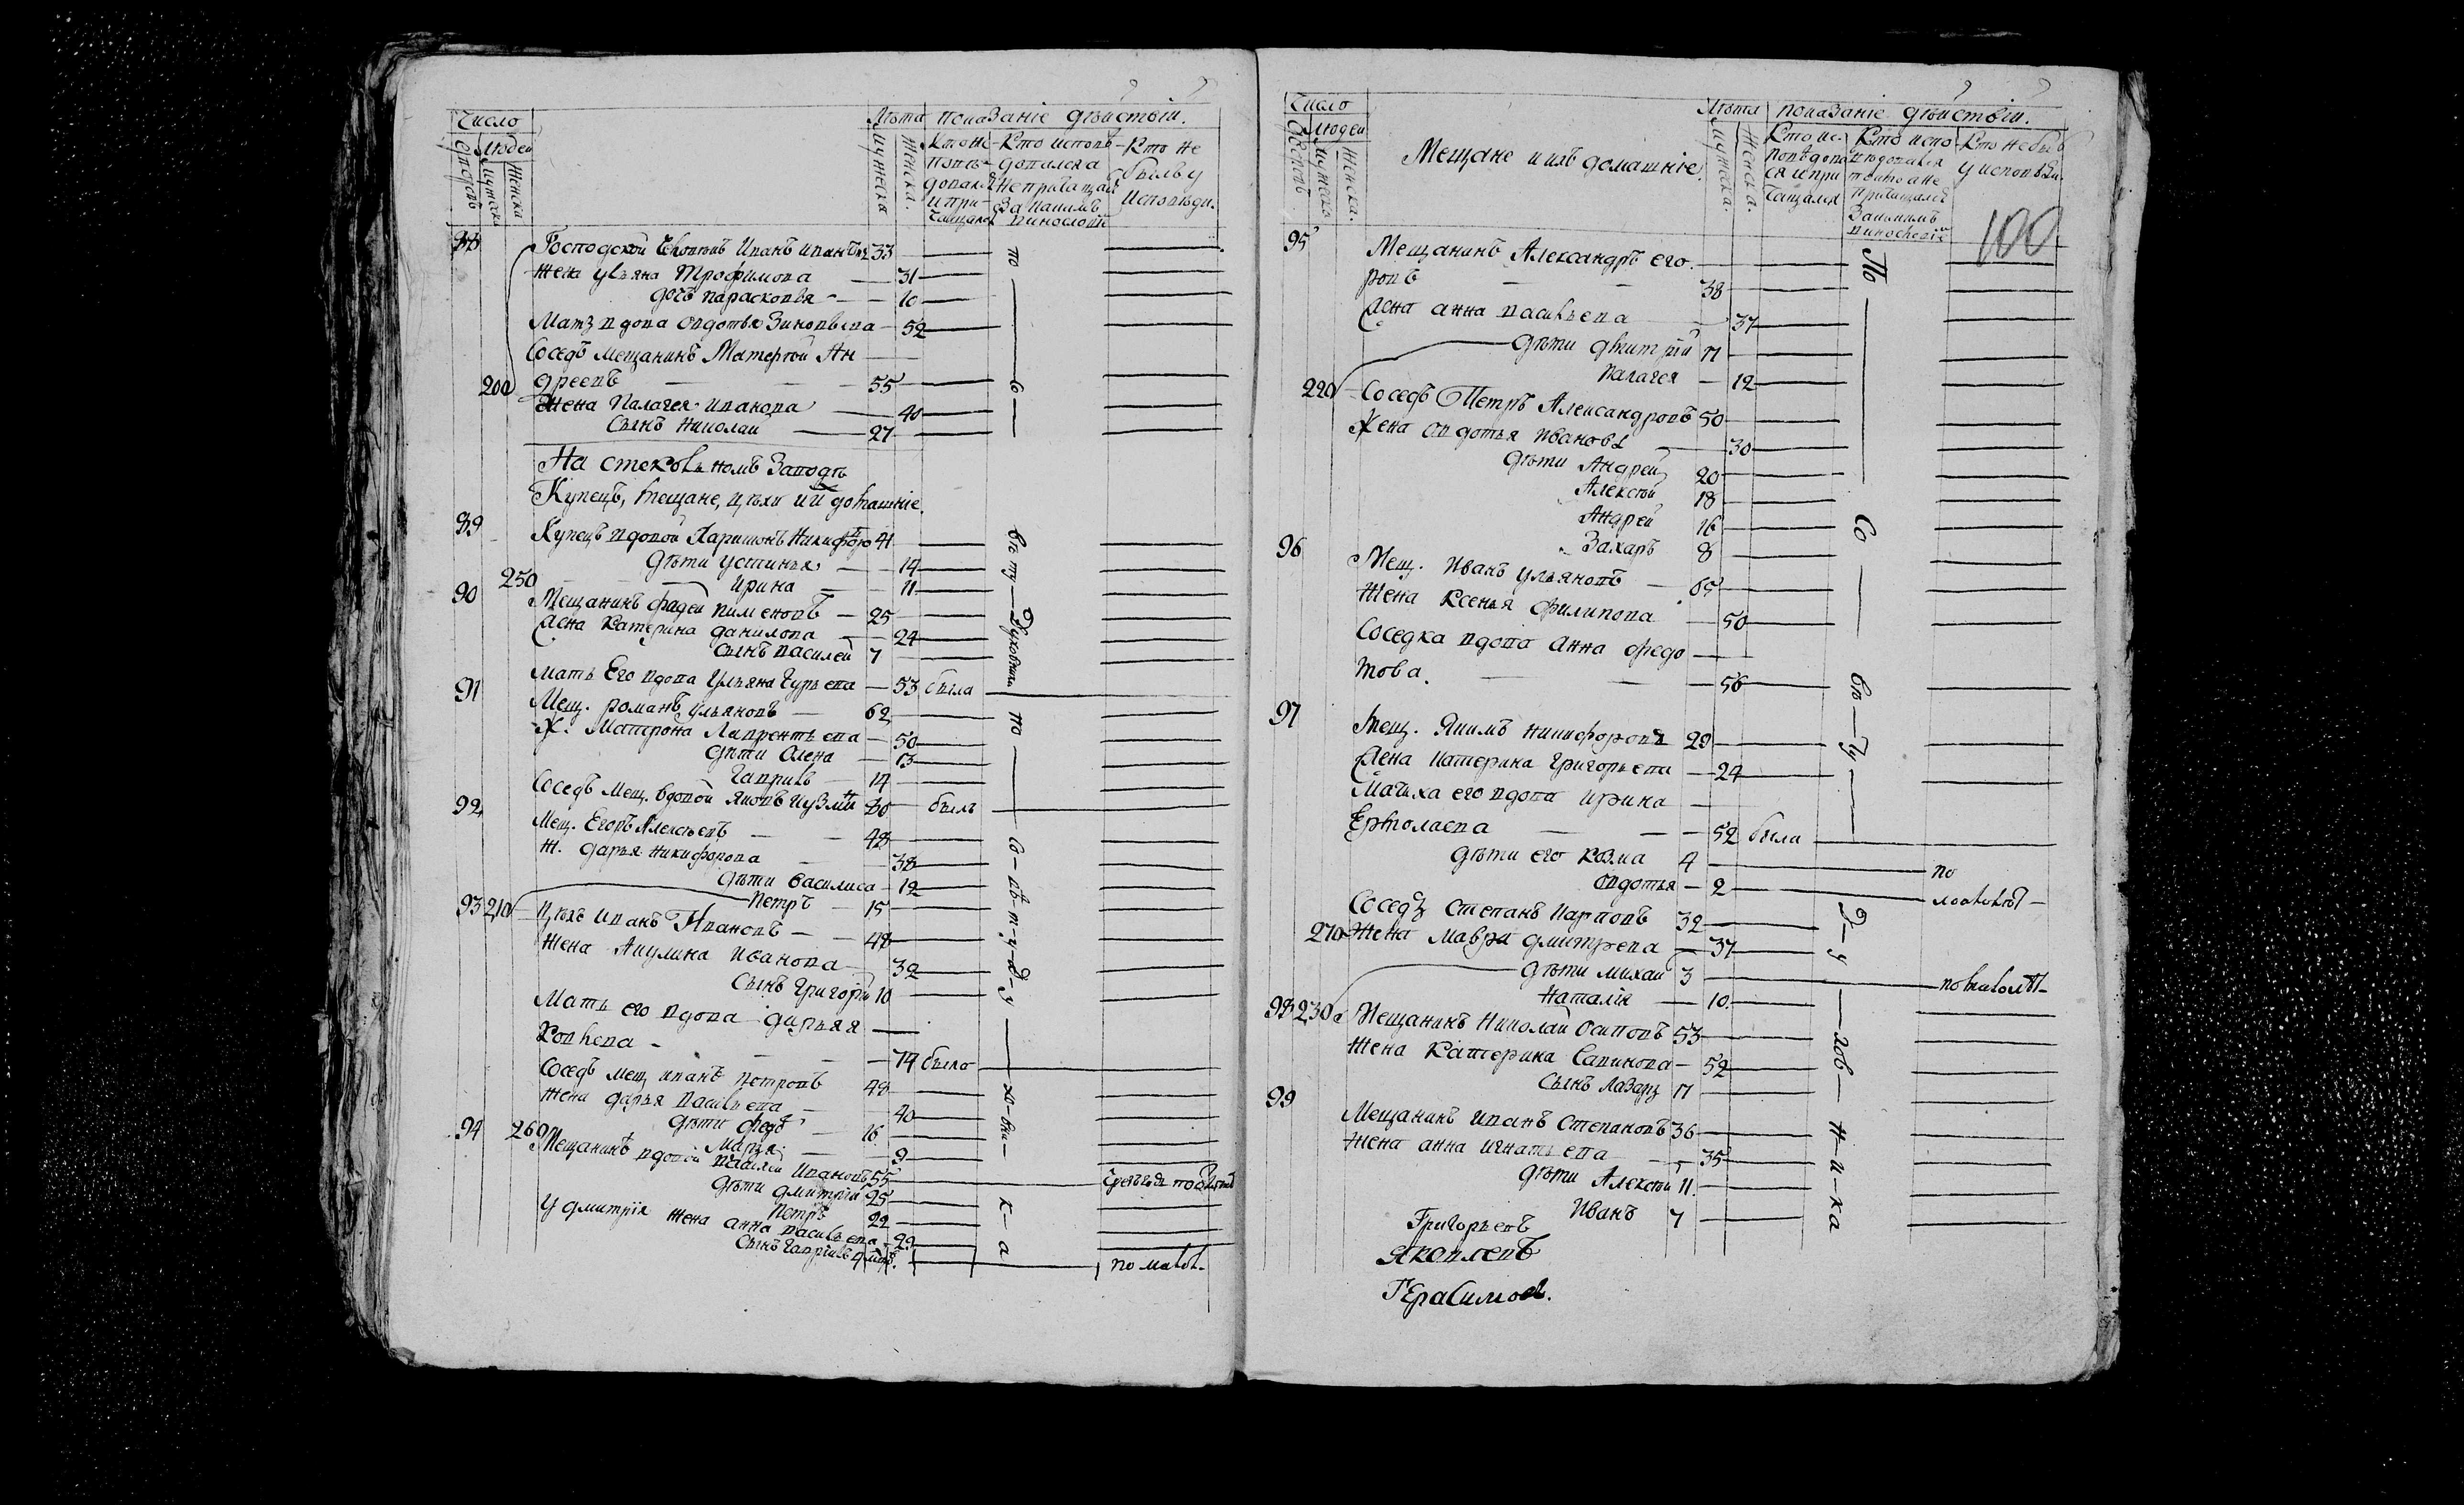 Число
Людей
Мужска
Женска
Лѣта
Мужеска
Женска.
показанiе дѣйствiй.
Кто испо-
вѣдовался
и при-
чащался
Кто исповѣ-
довался а
не причащал
за каким
винословiем
Кто не
былъ у
исповѣди.
Господской Иванъ Ивановъ 33
жена ульяна Трофимова — 31
дочъ парасковья — 10
Мать вдова овдотья Зиновьева — 52
Соседъ мещанинъ Матефѣй Ан
200 дреевъ — 55
Жена Палагея Иванова — 40
Сынъ Николай — 27
по — со —
На стекольномъ Заводѣ
Купецъ, мещане, цехи и ихъ домашнiе.
89 Купецъ вдовой Харитонъ Никифоро 41
Дѣти устинья — 14
250 Ирина — 11
90 Мещанинъ фадей пименовъ — 25
Жена катерина данилова — 24
сынъ василей 7
мать Его вдова Ульяна Гурьева — 53 была
91 Мещ. романъ ульяновъ — 62
Ж. Матрона Лаврентьева — 50
дѣти Олена — 13
Гаврилъ — 14
Соседъ мещ. вдовой Яковъ Кузми 80 былъ
92 Мещ. Егоръ Алексѣевъ — 48
Ж. дарья никифорова — 38
дѣти василиса — 12
Петръ — 15
93 210 цехъ Иванъ Ивановъ — 48
жена Акулина Иванова — 32
Сынъ Григорiй 10
Мать его вдова дарья —
— 74 была
Соседъ мещ иванъ петровъ 49
жена дарья васильева — 40
дѣти федо — 16
Марья — 9
94 260 Мещанинъ вдовой василей Ивановъ 55
дѣти дмитрiй 25
Петръ 22
У дмитрiя жена анна васильева — 29
Сынъ Гаврилъ
по малол.
Число
Людей
Мужеска
Женска.
Мещане и ихъ домашнiе.
Лѣта
Мужеска.
Женска.
показанiе дѣйствiй.
Кто ис-
повѣдова
ся и при
чащался
Кто испо
вѣдовался
токмо а не
причащался
За каким
винословiй
Кто не был
у исповѣди.
100
95 Мещанинъ Александръ его.
ровъ — 38
Жена анна васильева — 37
дѣти дмитрiй 17
палагея — 12
220 Соседъ Петръ Александровъ 50
Жена овдотья Иванова — 30
дѣти Андрей 20
Алексѣй 18
Андрей 16
Захаръ 8
96 Мещ. Иванъ ульяновъ — 65
жена ксенья филипова — 50
Соседка вдова анна федо —
това. — 56
97 Мещ. Якимъ никифоровъ 29
Жена катерина григорьева — 24
Мачиха его вдова ирина —
Ермолаева — 52 была
дѣти его козма 4 — по
овдотья — 2 — малолѣт—
Соседъ степанъ карповъ 32
270 Жена мавра дмитрева — 37
дѣти михай 3 — по малолѣт—
Наталiя — 10
98 230 Мещанинъ николай осиповъ 53
жена катерина савинова — 52
Сынъ лазарь 17
99 Мещанинъ иванъ Степановъ 36
жена анна игнатьева — 35
дѣти Алексѣй 11
Иванъ 7
Григорьевъ
яковлевъ
Герасимовъ.